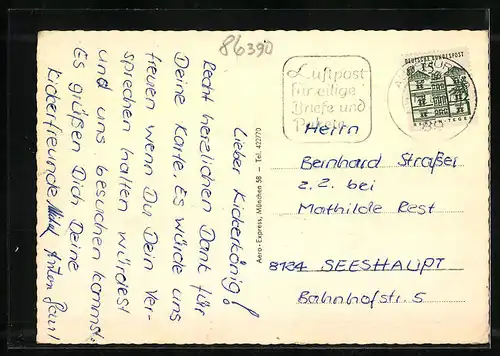 86390
Lieber Kickerkönig!
Recht herzlichen Dank für
Deine Karte. Es würde uns
freuen wenn Du Dein Ver-
sprechen halten würdest
und uns besuchen kommst.
Es grüßen Dich Deine
Kickerfreunde
Anton
Aero-Express, München 58 — Tel. 422770
Luftpost
für eilige
Briefe und
Pakete
DEUTSCHE BUNDESPOST
15
89
Herrn
Bernhard Straßer
z.Z. bei
Mathilde Rest
8124 SEESHAUPT
Bahnhofstr. 5